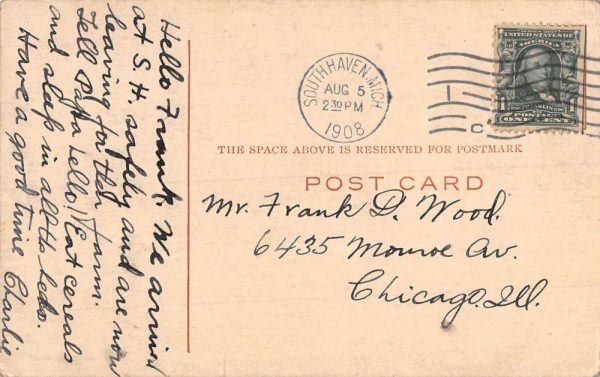 Hello Frank, We arrived
at S. H. safely and are now
leaving for the farm.
Tell Papa hello! Eat cereals
and sleep in all the beds.
Have a good time Charlie
SOUTH HAVEN, MICH.
AUG 5
2:30 PM
1908
UNITED STATES OF
AMERICA
1 1
POSTAGE
ONE CENT
C
THE SPACE ABOVE IS RESERVED FOR POSTMARK
POST CARD
Mr. Frank D. Wood.
6435 Monroe Av.
Chicago, Ill.